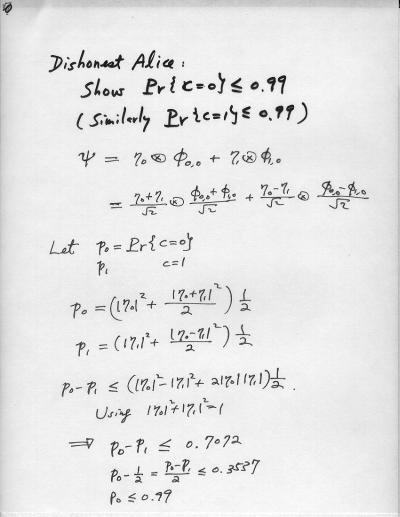 Dishonest Alice:
Show Pr{c=0} ≤ 0.99
(Similarly Pr{c=1} ≤ 0.99)
Ψ = η₀ ⊗ ϕ₀,₀ + η₁ ⊗ ϕ₁,₀
= (η₀+η₁)/√2 ⊗ (ϕ₀,₀+ϕ₁,₀)/√2 + (η₀-η₁)/√2 ⊗ (ϕ₀,₀-ϕ₁,₀)/√2
Let p₀ = Pr{c=0}
p₁ c=1
p₀ = (|η₀|² + |η₀+η₁|²/2) 1/2
p₁ = (|η₁|² + |η₀-η₁|²/2) 1/2
p₀-p₁ ≤ (|η₀|²-|η₁|²+2|η₀||η₁|) 1/2.
Using |η₀|²+|η₁|²=1
⇒ p₀-p₁ ≤ 0.7072
p₀-1/2 = (p₀-p₁)/2 ≤ 0.3537
p₀ ≤ 0.99